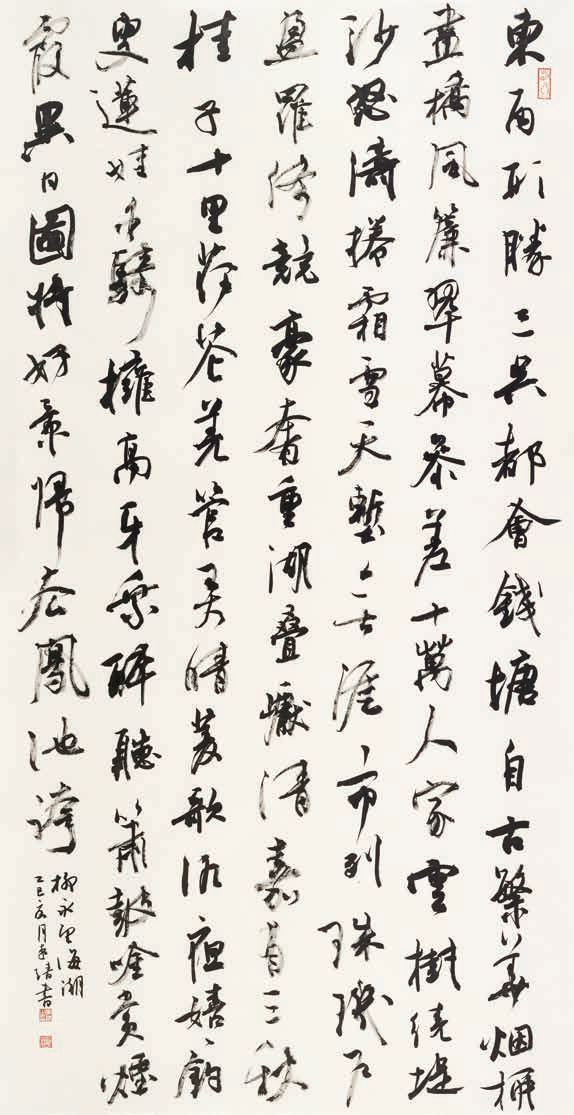 東南形勝三吳都會錢塘自古繁華烟柳
畫橋風簾翠幕參差十萬人家雲樹繞堤
沙怒濤捲霜雪天塹无涯市列珠璣戶
盈羅綺競豪奢重湖叠巘清嘉有三秋
桂子十里荷花羌管弄晴菱歌泛夜嬉〻釣
叟蓮娃千騎擁高牙乘醉聽簫鼓吟賞煙
霞異日圖將好景歸去鳳池誇
柳永望海潮
乙巳月書